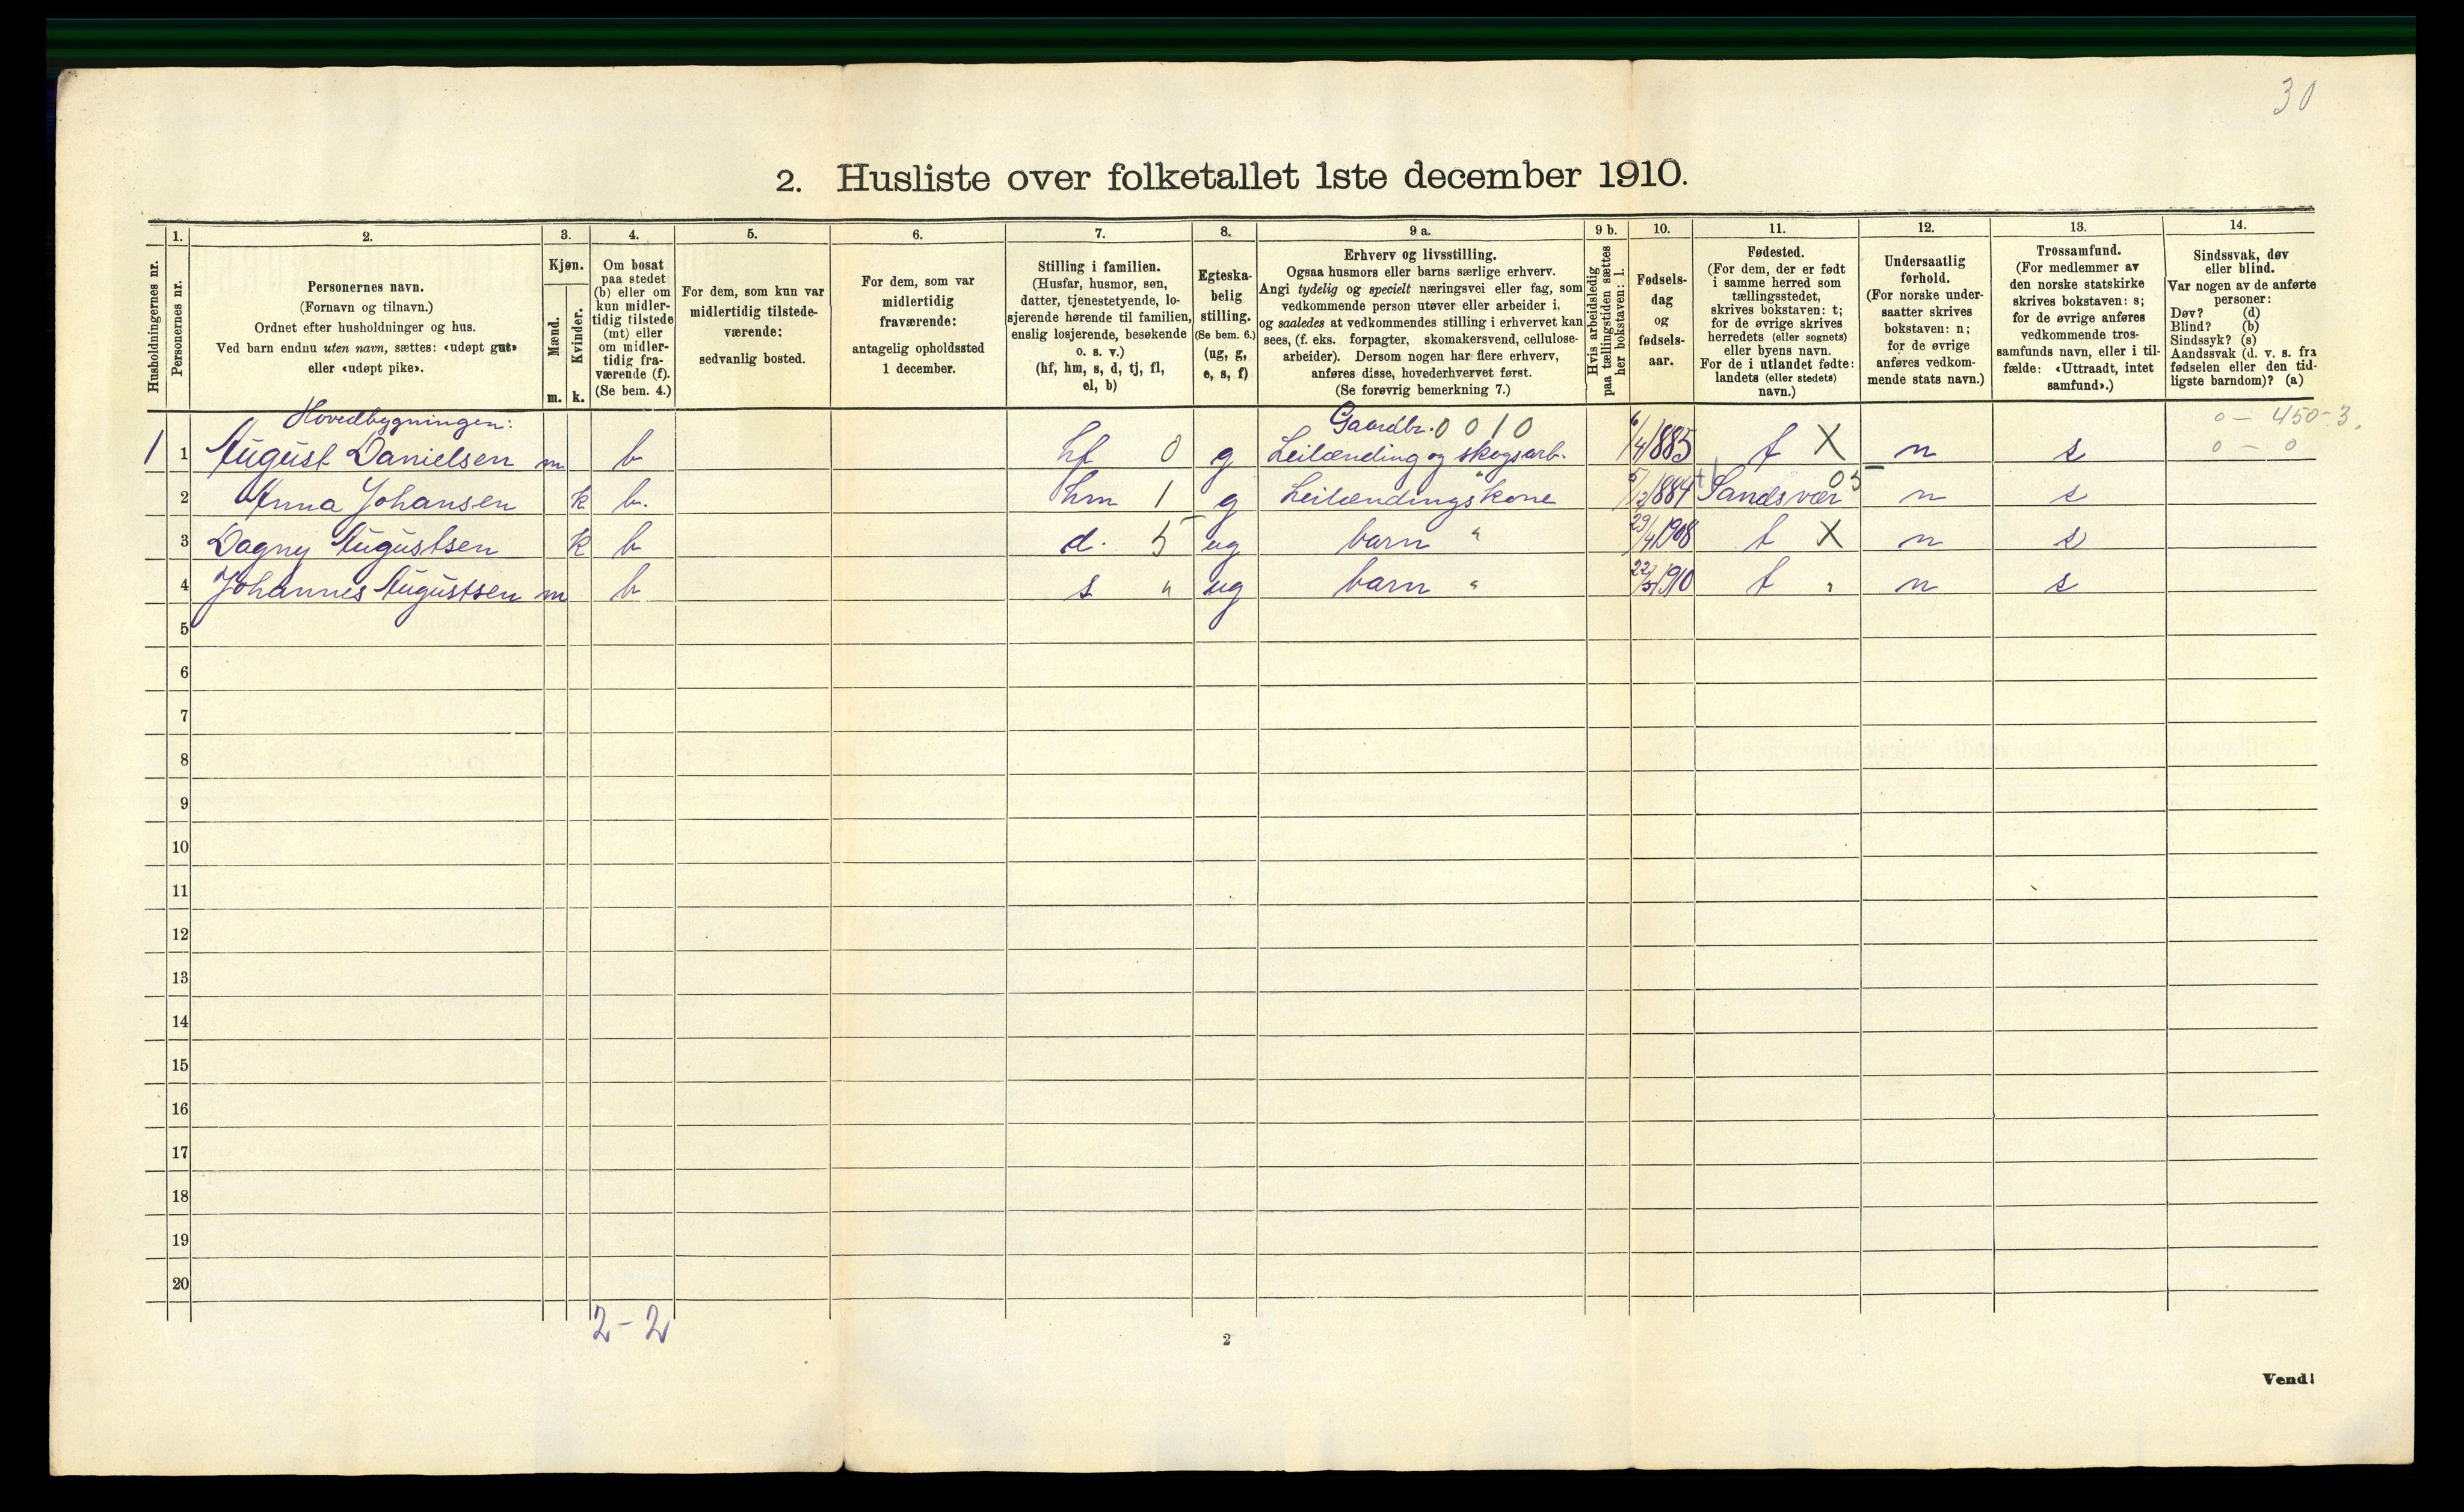 30
2. Husliste over folketallet 1ste december 1910.
Husholdningernes nr.
1.
Personernes nr.
2.
Personernes navn.
(Fornavn og tilnavn.)
Ordnet efter husholdninger og hus.
Ved barn endnu uten navn, sættes: «udøpt gut»
eller «udøpt pike».
3.
Kjøn.
Mænd.
Kvinder.
m. k.
4.
Om bosat
paa stedet
(b) eller om
kun midler-
tidig tilstede
(mt) eller
om midler-
tidig fra-
værende (f).
(Se bem. 4.)
5.
For dem, som kun var
midlertidig tilstede-
værende:
sedvanlig bosted.
6.
For dem, som var
midlertidig
fraværende:
antagelig opholdssted
1 december.
7.
Stilling i familien.
(Husfar, husmor, søn,
datter, tjenestetyende, lo-
sjerende hørende til familien,
enslig losjerende, besøkende
o. s. v.)
(hf, hm, s, d, tj, fl,
el, b)
8.
Egteska-
belig
stilling.
(Se bem. 6.)
(ug, g,
e, s, f)
9 a.
Erhverv og livsstilling.
Ogsaa husmors eller barns særlige erhverv.
Angi tydelig og specielt næringsvei eller fag, som
vedkommende person utøver eller arbeider i,
og saaledes at vedkommendes stilling i erhvervet kan
sees, (f. eks. forpagter, skomakersvend, cellulose-
arbeider). Dersom nogen har flere erhverv,
anføres disse, hovederhvervet først.
(Se forøvrig bemerkning 7.)
9 b.
Hvis arbeidsledig
paa tællingstiden sættes
her bokstaven: l.
10.
Fødsels-
dag
og
fødsels-
aar.
11.
Fødested.
(For dem, der er født
i samme herred som
tællingsstedet,
skrives bokstaven: t;
for de øvrige skrives
herredets (eller sognets)
eller byens navn.
For de i utlandet fødte:
landets (eller stedets)
navn.)
12.
Undersaatlig
forhold.
(For norske under-
saatter skrives
bokstaven: n;
for de øvrige
anføres vedkom-
mende stats navn.)
13.
Trossamfund.
(For medlemmer av
den norske statskirke
skrives bokstaven: s;
for de øvrige anføres
vedkommende tros-
samfunds navn, eller i til-
fælde: «Uttraadt, intet
samfund».)
14.
Sindssvak, døv
eller blind.
Var nogen av de anførte
personer:
Døv? (d)
Blind? (b)
Sindssyk? (s)
Aandssvak (d. v. s. fra
fødselen eller den tid-
ligste barndom)? (a)
Hovedbygningen: Gaardbr. 0 0 1 0 0 - 450-3.
1 1 August Danielsen m b hf 0 g Leilænding og skogsarb. 6/4 1885 t X n s 0 - 0
2 Anna Johansen k b. hm 1 g Leilændingskone 5/12 1884 Sandsvær 05 n s
3 Dagny Augustsen k b d. 5 ug barn " 29/4 1908 t X n s
4 Johannes Augustsen m b s " ug barn " 22/5 1910 t " n s
5
6
7
8
9
10
11
12
13
14
15
16
17
18
19
20
2-2
2
Vend!